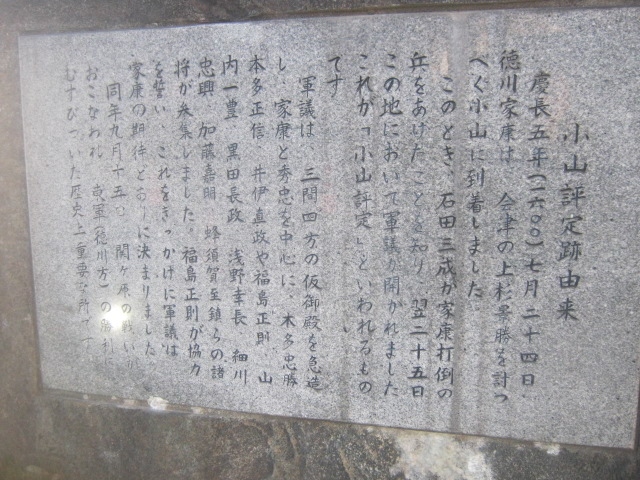 小山評定跡由来
慶長五年(一六〇〇)七月二十四日、
徳川家康は、会津の上杉景勝を討つ
べく小山に到着しました
このとき、石田三成が家康打倒の
兵をあげたことを知り、翌二十五日
この地において軍議が開かれました
これが「小山評定」といわれるもの
です
軍議は、三間四方の仮御殿を急造
し、家康と秀忠を中心に、本多忠勝
本多正信、井伊直政や福島正則、山
内一豊、黒田長政、浅野幸長、細川
忠興、加藤嘉明、蜂須賀至鎮らの諸
将が参集しました。福島正則が協力
を誓い、これをきっかけに軍議は
家康の期待どおりに決まりました
同年九月十五日、関ヶ原の戦いが
おこなわれ、東軍(徳川方)の勝利に
むすびついた歴史上重要な所です